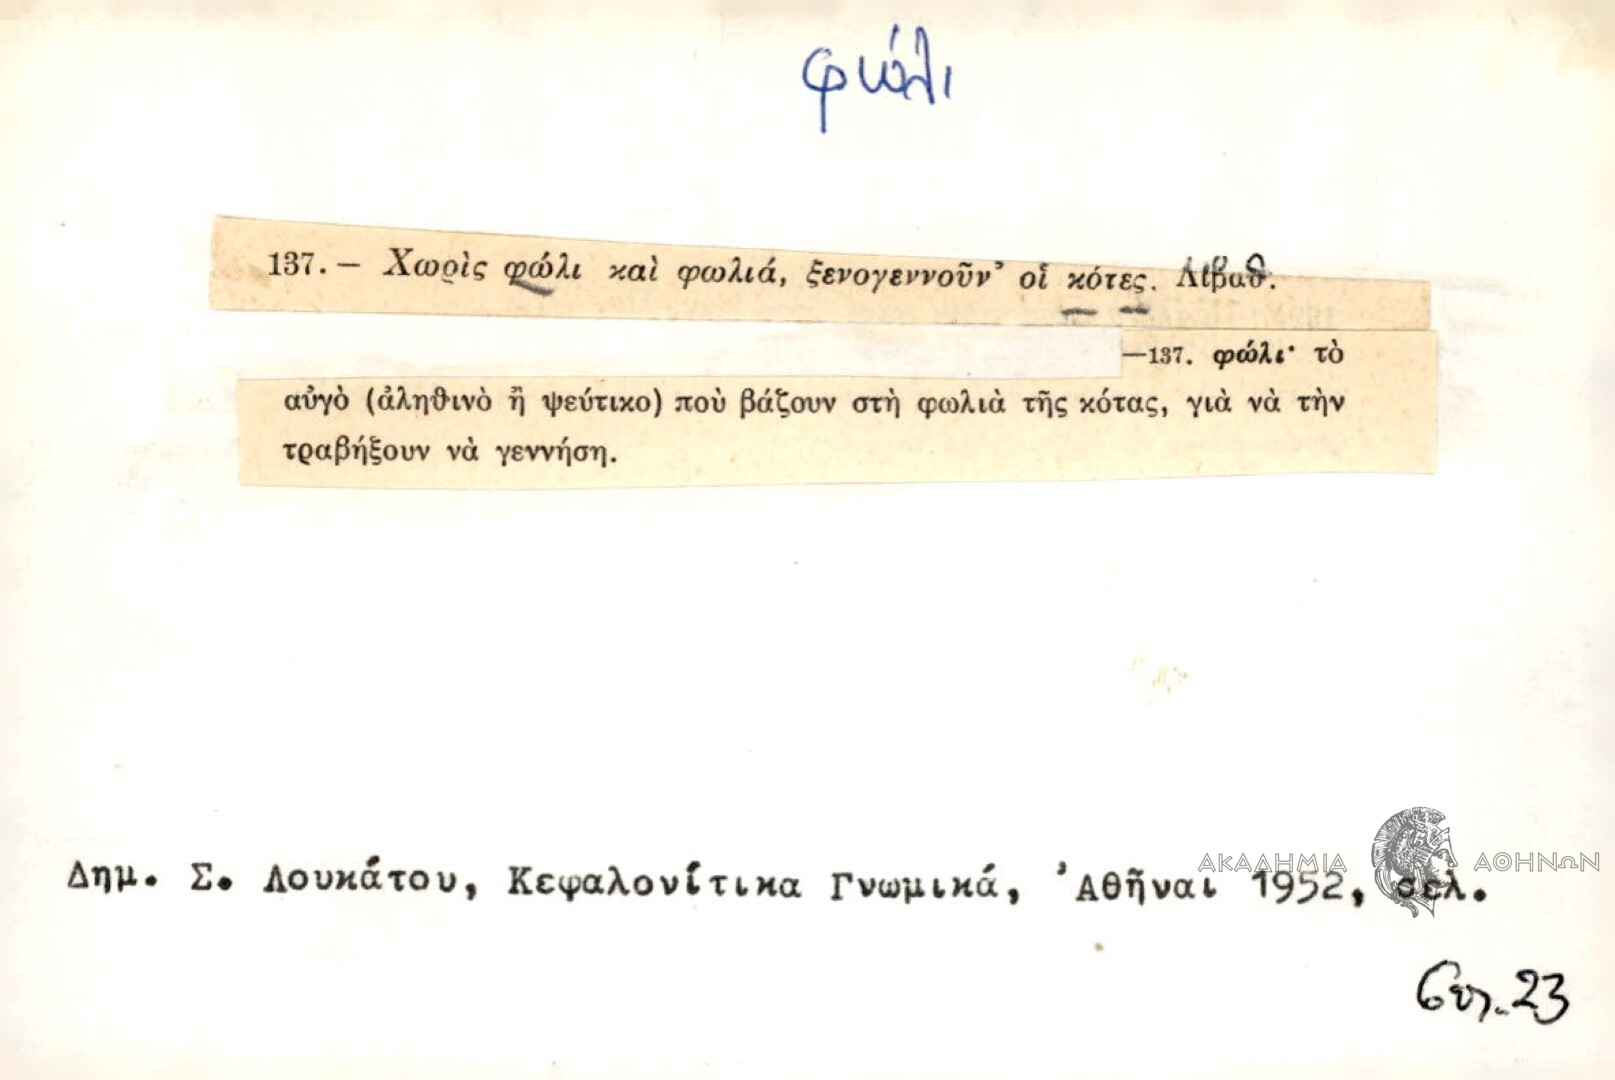 φώλι
137.— Χωρὶς φώλι καὶ φωλιά, ξενογεννοῦν᾽ οἱ κότες. Λιβαθ.
—137. φώλι· τὸ
αὐγὸ (ἀληθινὸ ἢ ψεύτικο) ποὺ βάζουν στὴ φωλιὰ τῆς κότας, γιὰ νὰ τὴν
τραβήξουν νὰ γεννήση.
ΑΚΑΔΗΜΙΑ ΑΘΗΝΩΝ
Δημ. Σ. Λουκάτου, Κεφαλονίτικα Γνωμικά, Ἀθῆναι 1952, σελ.
σελ. 23